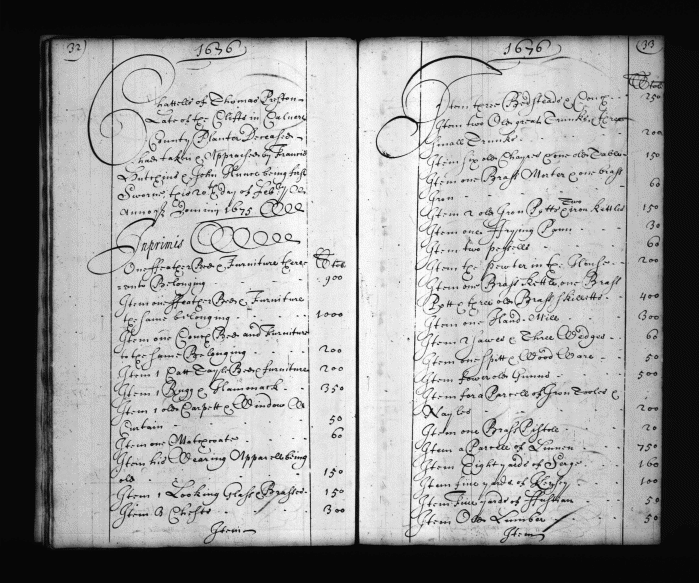 32
1676
Chattells of Thomas
Late of the Clifts in Calvert
County Planter Deceased
taken & Appraised by Francis
Hutchins & John being first
Sworne, this 20th day of Feb
Domini 1675
Inprimis
Tob
One ffeather Bed & Furniture there
unto Belonging 900
Item one ffeather Bed & Furniture
the same belonging 1000
Item one Couch Bed and Furniture
to the same Belonging 200
Item 1 Catt Tayle Bed & furniture 200
Item 1 Rugg & Hammack 350
Item 1 old Carpett & Window
Curtain 50
Item one 60
Item his Wearing Apparell being
old 150
Item 1 Looking Glass Brasses 150
Item 3 Chests 300
Item
1676
33
Tob
Item three Bedsteads & 250
Item two Old great Trunks & three
Small Trunks 200
Item six old Chayres & one old Table 150
Item one Brass Morter & one brass
Iron 60
Item 2 old Iron Potts & Two iron Kettles 150
Item one ffrying Pann 30
Item two pestells 60
Item the Pewter in the House 200
Item one Brass Kettle one Brass
Pott & three old Brass skilletts 400
Item one Hand Mill 300
Item 2 sawes & Three Wedges 60
Item one Spitt & Wood Ware 50
Item fower old Gunns 500
Item for a Parcell of Iron Tooles &
Nayles 200
Item one Brass Pistell 20
Item a Parcell of Linnen 750
Item Eight yards of Sarge 160
Item five yards of Kersy 100
Item Five yards of ffustian 50
Item Old Lumber 50
Item